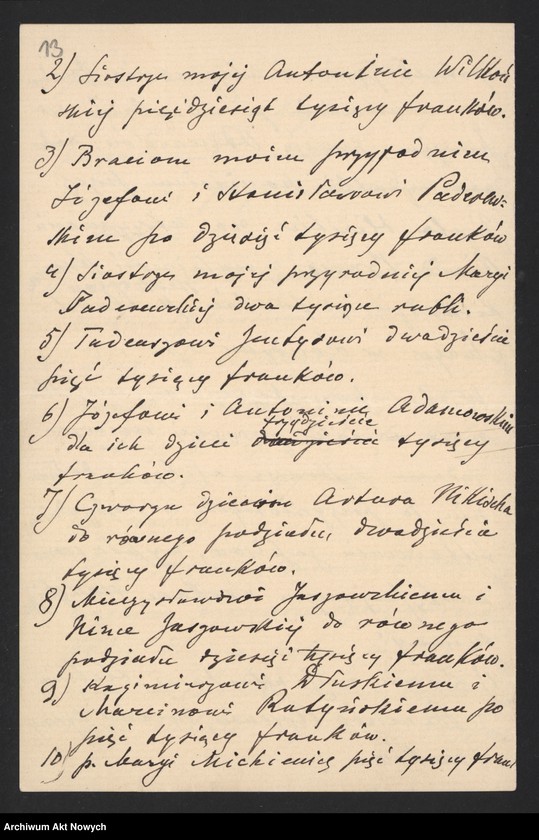 13
2) Siostrze mojej Antoninie Wilkoń
skiej pięćdziesiąt tysięcy franków.
3) Braciom moim przyrodnim
Józefowi i Stanisławowi Paderew-
skim po dziesięć tysięcy franków
4) Siostrze mojej przyrodniej Maryi
Paderewskiej dwa tysiące rubli.
5) Tadeuszowi Jentysowi dwadzieścia
pięć tysięcy franków.
6) Józefowi i Antoninie Adamowskim
trzydzieści
dla ich dzieci dwadzieścia tysięcy
franków.
7) Czworgu dzieciom Artura Nikischa
do równego podziału dwadzieścia
tysięcy franków.
8) Mieczysławowi Jaszowskiemu i
Nince Jaszowskiej do równego
podziału dziesięć tysięcy franków.
9) Kazimierzowi Dłuskiemu i
Marcinowi Ratyńskiemu po
pięć tysięcy franków.
10) p. Maryi Mickiewicz pięć tysięcy fran
Archiwum Akt Nowych